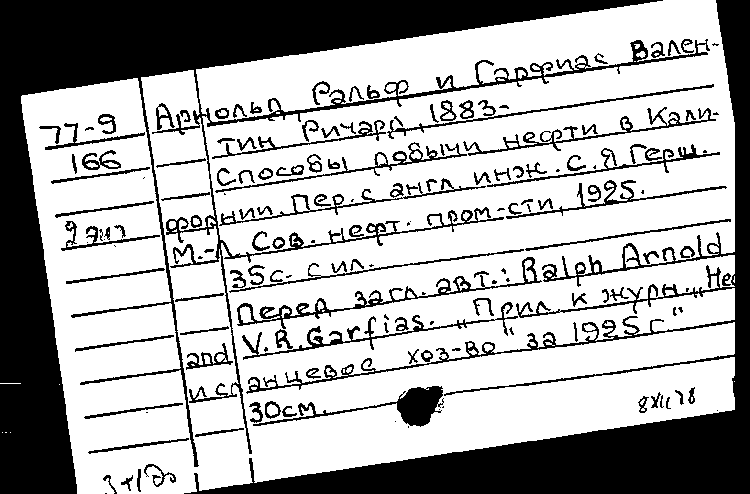 Арнольд, Ральф и Гарфиас, Вален-
77-9
тин Ричард, 1883-
166
Способы добычи нефти в Кали-
форнии. Пер. с англ. инж. С.Я. Герш.
2 экз
М.-Л., Сов. нефт. пром-сти, 1925.
35с. с ил.
Перед загл. авт.: Ralph Arnold
and V.R. Garfias. „Прил. к журн. „Неф
и сланцевое хоз-во" за 1925 г"
30см.